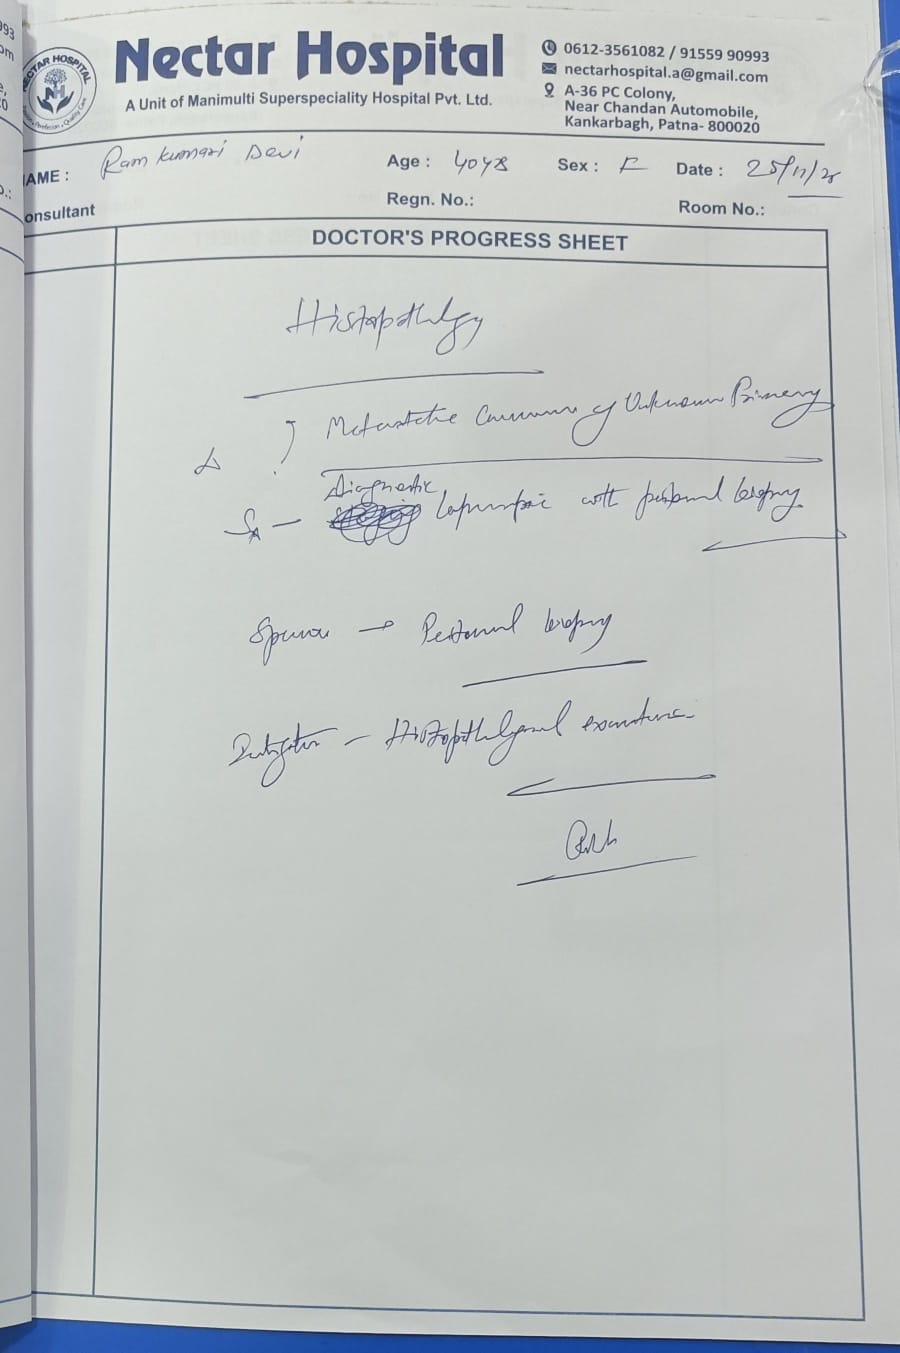 Nectar Hospital
A Unit of Manimulti Superspeciality Hospital Pvt. Ltd.
0612-3561082 / 91559 90993
nectarhospital.a@gmail.com
A-36 PC Colony,
Near Chandan Automobile,
Kankarbagh, Patna- 800020
AME : Ram Kumari Devi Age : 40 Sex : F Date : 25/11/25
onsultant Regn. No.: Room No.:
DOCTOR'S PROGRESS SHEET
Histopathology
Δ ? Metastatic Carcinoma of Unknown Primary
Diagnostic
Sx - with peritoneal biopsy
→ Peritoneal biopsy
- Histopathological examination